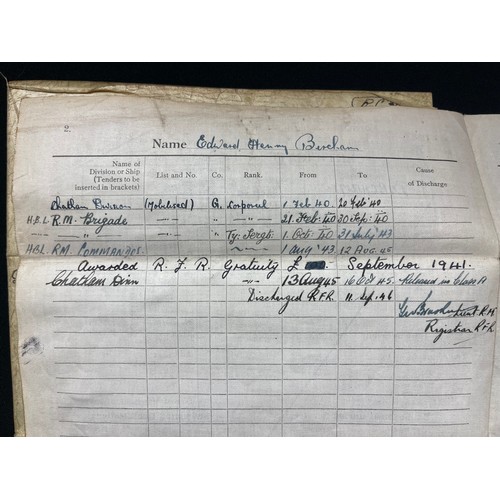 2.
Name Edward Henry Bircham
Name of Division or Ship (Tenders to be inserted in brackets) List and No. Co. Rank. From To Cause of Discharge
Chatham Division (Mobilised) G. Corporal 1 Feb 40. 20 Feb 40
H.B.L. R.M. Brigade —"— " —"— 21 Feb 40 30 Sep. 40
—"— " —"— " Ty: Sergt: 1 Oct: 40 31 July 43
HBL R.M. COMMANDOS. 1 Aug '43 12 AUG. 45
Awarded R. F. R. Gratuity £ September 1941.
Chatham Divn —"— 13 Aug 45 16 Oct 45. Released in Class A
Discharged R.F.R. 11 Sep. 46
Lieut R.M
Registrar R.F.R